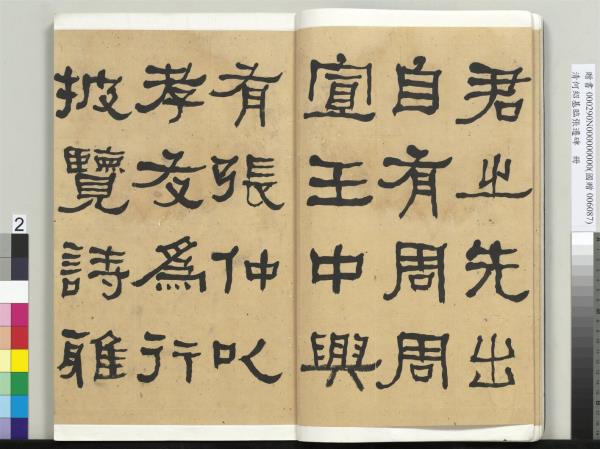 君之先出
自有周周
宣王中興
有張仲以
孝友為行
披覽詩雅
贈書 000290N000000000(國贈 006087)
清何紹基臨張遷碑 冊
2